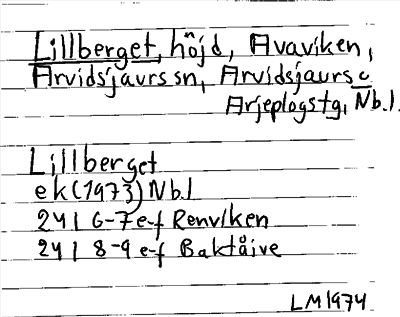 Lillberget, höjd, Avaviken,
Arvidsjaurs sn, Arvidsjaurs o
Arjeplogs tg, Nb.l.
Lillberget
ek (1973) Nb.l
24 I 6-7 e-f Renviken
24 I 8-9 e-f Baktåive
LM 1974